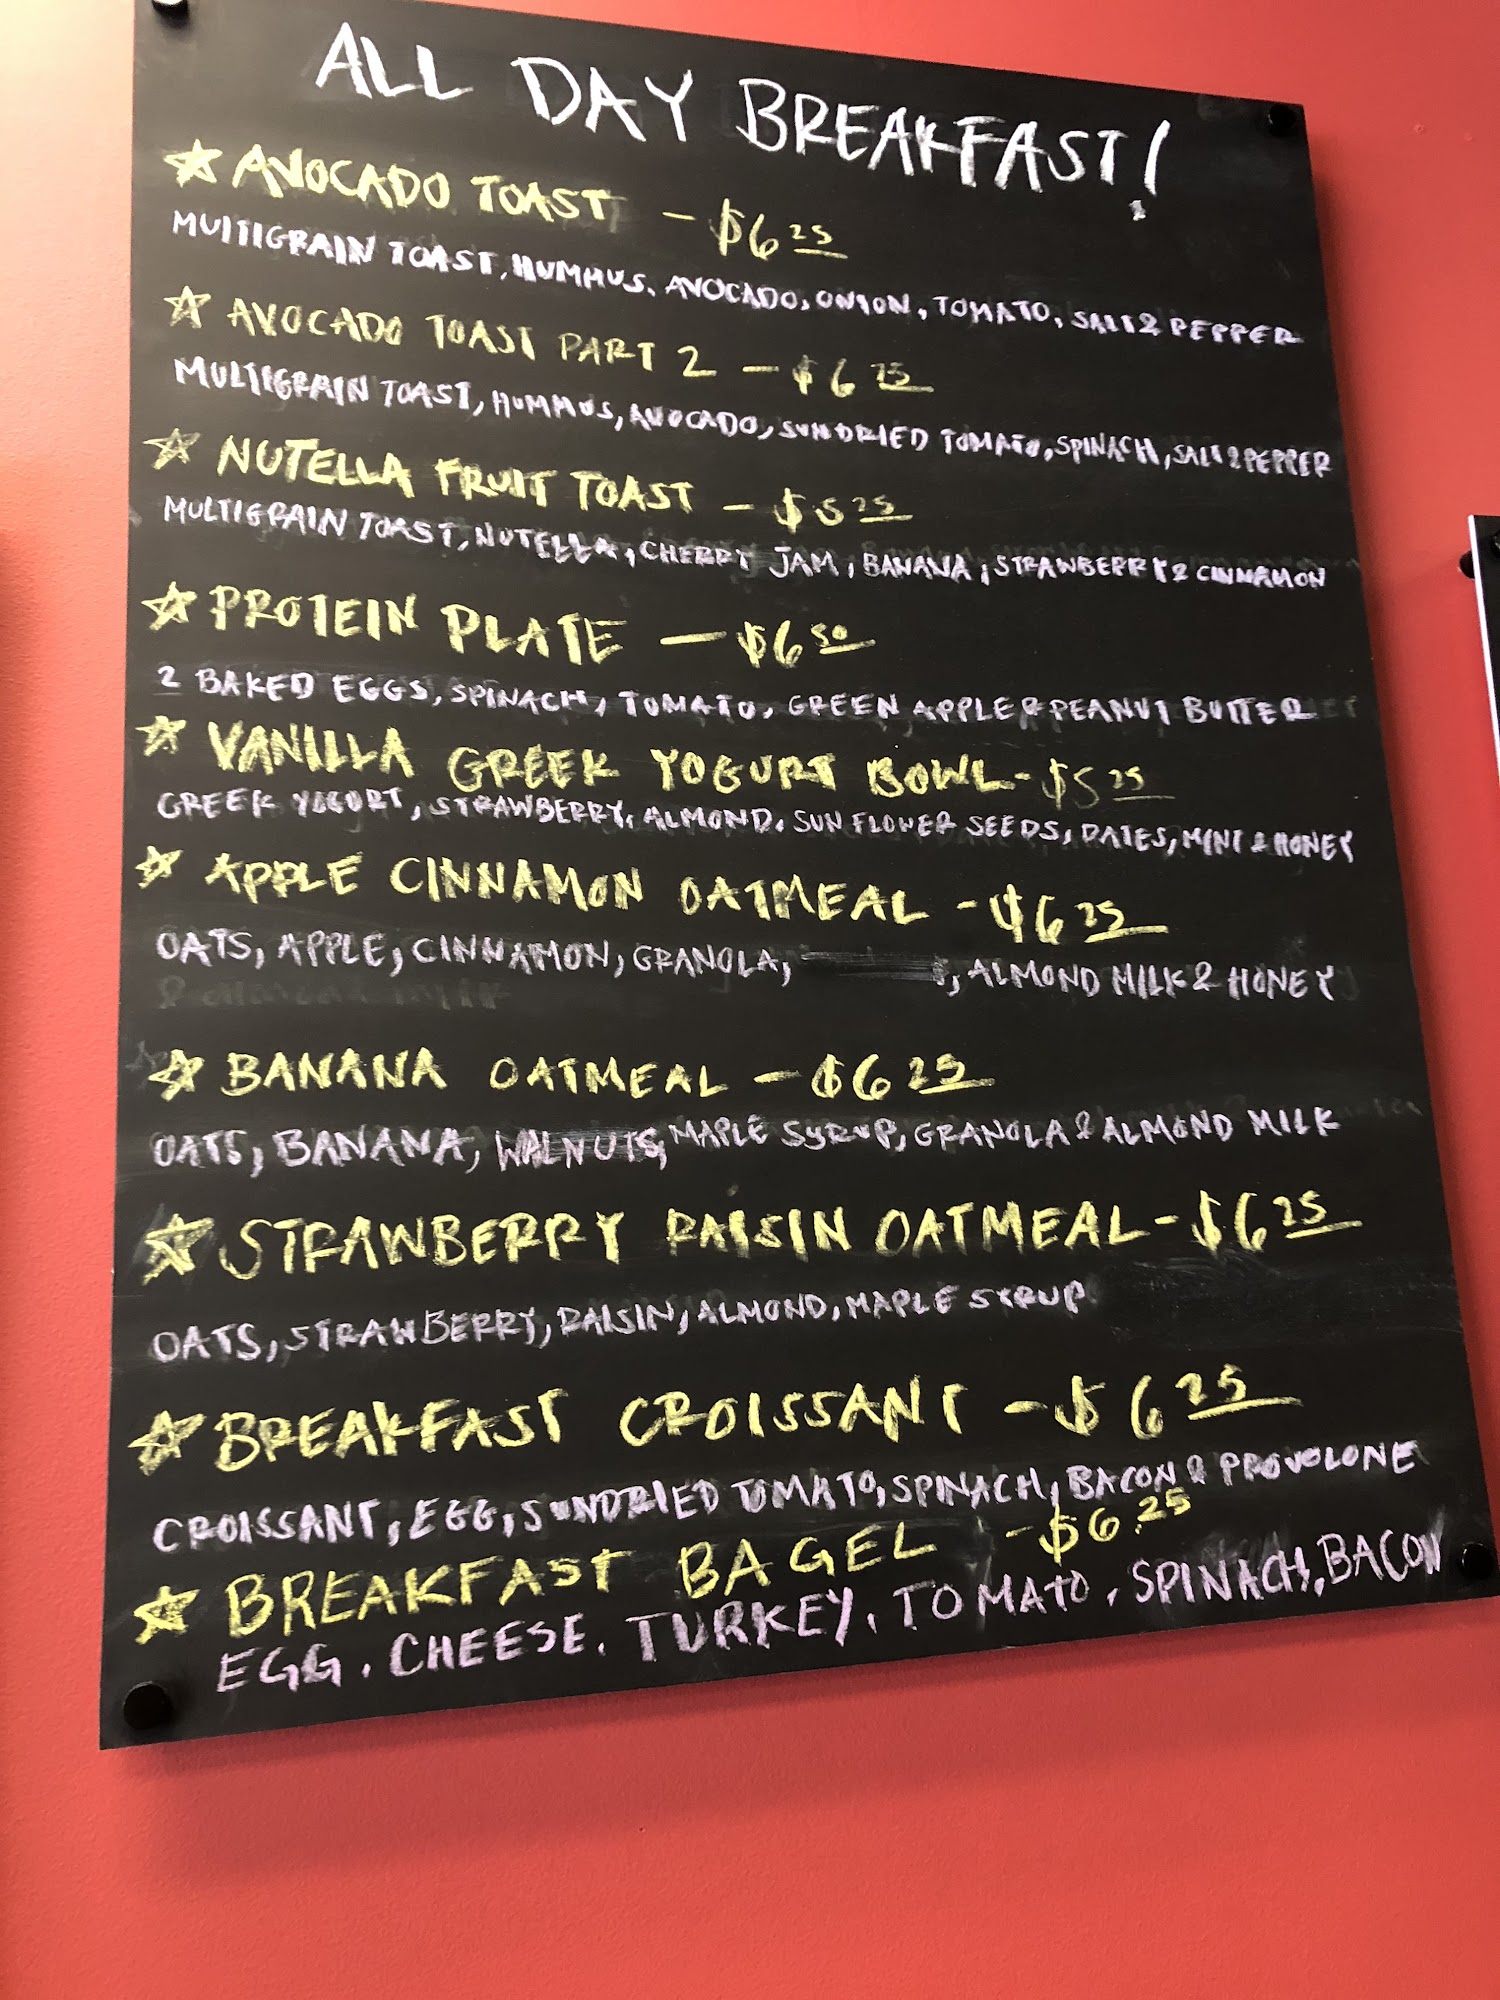 ALL DAY BREAKFAST!
☆ AVOCADO TOAST - $6 25
MULTIGRAIN TOAST, HUMMUS, AVOCADO, ONION, TOMATO, SALT & PEPPER
☆ AVOCADO TOAST PART 2 - $6 25
MULTIGRAIN TOAST, HUMMUS, AVOCADO, SUNDRIED TOMATO, SPINACH, SALT & PEPPER
☆ NUTELLA FRUIT TOAST - $5 25
MULTIGRAIN TOAST, NUTELLA, CHERRY JAM, BANANA, STRAWBERRY & CINNAMON
☆ PROTEIN PLATE - $6 50
2 BAKED EGGS, SPINACH, TOMATO, GREEN APPLE & PEANUT BUTTER
☆ VANILLA GREEK YOGURT BOWL - $5 25
GREEK YOGURT, STRAWBERRY, ALMOND, SUN FLOWER SEEDS, DATES, MINT & HONEY
☆ APPLE CINNAMON OATMEAL - $6 25
OATS, APPLE, CINNAMON, GRANOLA, , ALMOND MILK & HONEY
☆ BANANA OATMEAL - $6 25
OATS, BANANA, WALNUTS, MAPLE SYRUP, GRANOLA & ALMOND MILK
☆ STRAWBERRY RAISIN OATMEAL - $6 25
OATS, STRAWBERRY, RAISIN, ALMOND, MAPLE SYRUP
☆ BREAKFAST CROISSANT - $6 25
CROISSANT, EGG, SUNDRIED TOMATO, SPINACH, BACON & PROVOLONE
☆ BREAKFAST BAGEL - $6.25
EGG, CHEESE, TURKEY, TOMATO, SPINACH, BACON